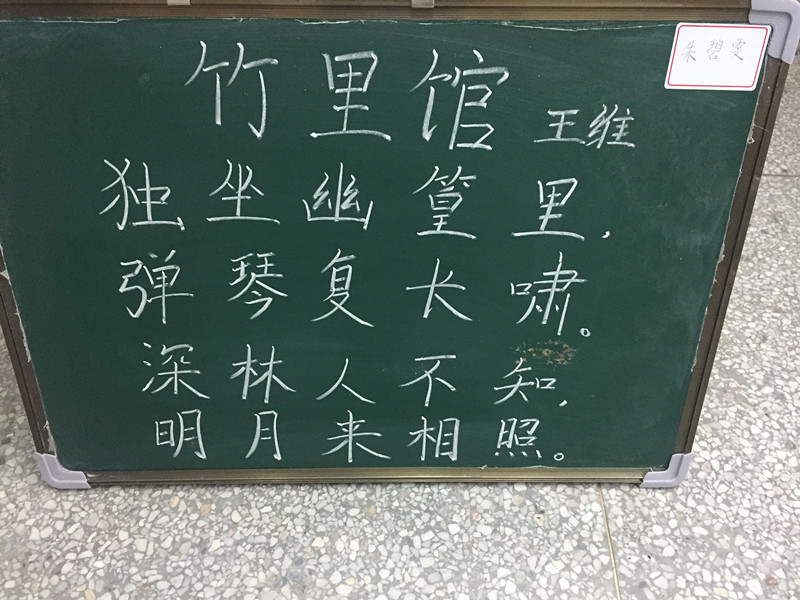 朱碧雯
竹里馆
王维
独坐幽篁里,
弹琴复长啸。
深林人不知,
明月来相照。